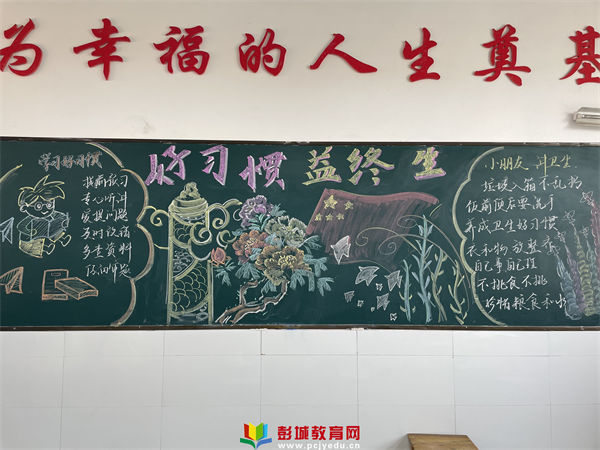 为幸福的人生奠基
好习惯 益终生
学习好习惯
课前预习
专心听讲
发现问题
及时改错
多查资料
小朋友 讲卫生
垃圾入箱不乱扔
饭前便后要洗手
养成卫生好习惯
衣和物 放整齐
自己事自己理
不挑食不挑
珍惜粮食和水
彭城教育网
www.pcjyedu.cn